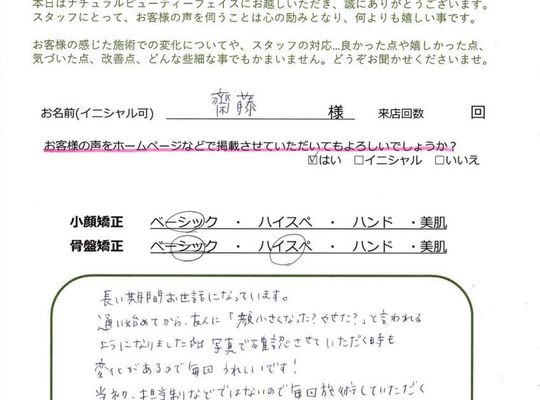 本日はナチュラルビューティーフェイスにお越しいただき、誠にありがとうございます。
スタッフにとって、お客様の声を伺うことは心の励みとなり、何よりも嬉しい事です。
お客様の感じた施術での変化についてや、スタッフの対応…良かった点や嬉しかった点、
気づいた点、改善点、どんな些細な事でもかまいません。どうぞお聞かせくださいませ。
お名前(イニシャル可) 齋藤 様 来店回数 回
お客様の声をホームページなどで掲載させていただいてもよろしいでしょうか？
☑はい □イニシャル □いいえ
小顔矯正 ベーシック ・ ハイスペ ・ ハンド ・美肌
骨盤矯正 ベーシック ・ ハイスペ ・ ハンド ・美肌
長い期間お世話になっています。
通い始めてから、友人に「顔小さくなった？やせた？」と言われる
ようになりました 写真で確認させていただく時も
変化があるので毎回 うれしいです！
当初、担当制などではないので毎回施術していただく